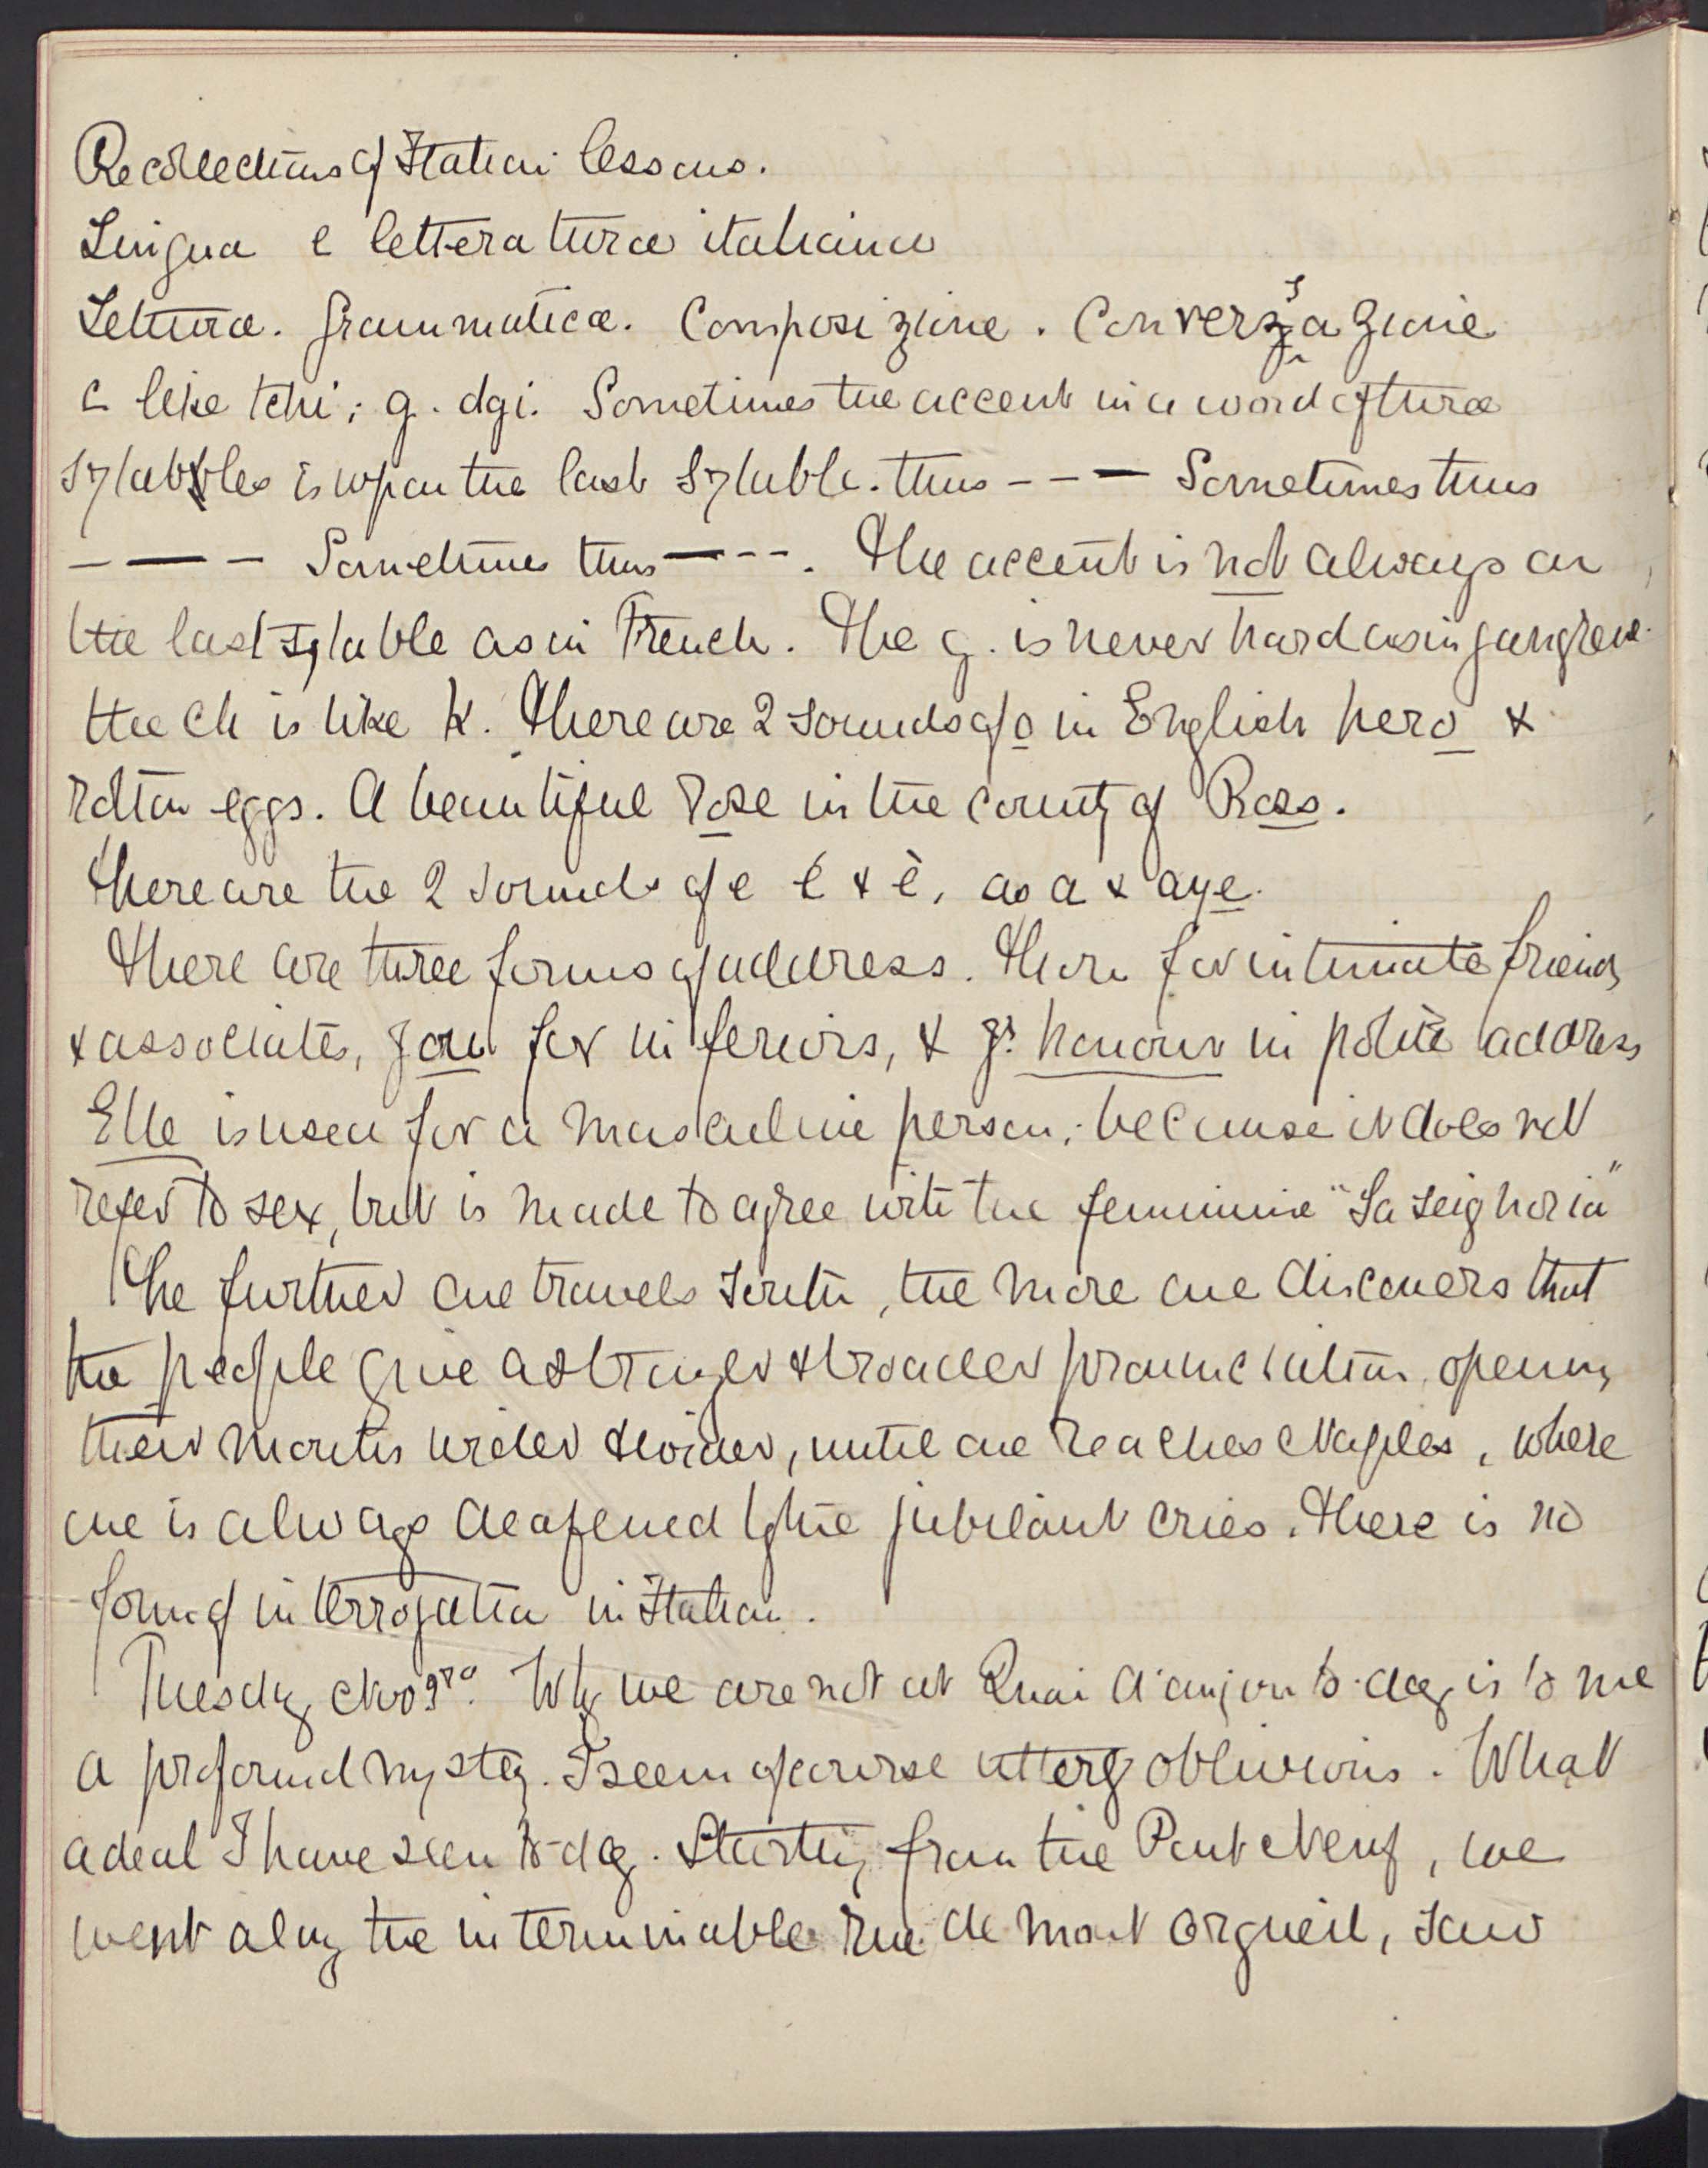 Recollections of Italian lessons.
Lingua e letteratura italiana
Lettura. Grammatica. Composizione. Conversazione
c like tchi; g. dgi. Sometimes the accent in a word of three
sylabbles is upon the last sylable. thus - - — Sometimes thus
- — - Sometimes thus — - -. The accent is not always on
the last sylable as in French. The g. is never hard as in gangrene.
the ch is like K. There are 2 sounds of o in English hero &
rotton eggs. A beautiful rose in the county of Ross.
There are the 2 sounds of e é & è, as a & aye.
There are three forms of address. Thou for intimate friends
& associates, you for inferiors, & yr. honour in polite address
Elle is used for a masculine person, because it does not
refer to sex, but is made to agree with the feminine "La seignoria"
The further one travels South, the more one discovers that
the people give a stronger & broader pronunciation, opening
their mouths wider & wider, until one reaches Naples, where
one is always deafened by the jubilant cries. There is no
form of interrogation in Italian.
Tuesday, Nov 3rd. Why we are not at Quai d'anjou to-day is to me
a profound mystery. I seem of course utterly oblivious. What
a deal I have seen to-day. Starting from the Pont Neuf, we
went along the interminable rue de Mont orgueil, saw